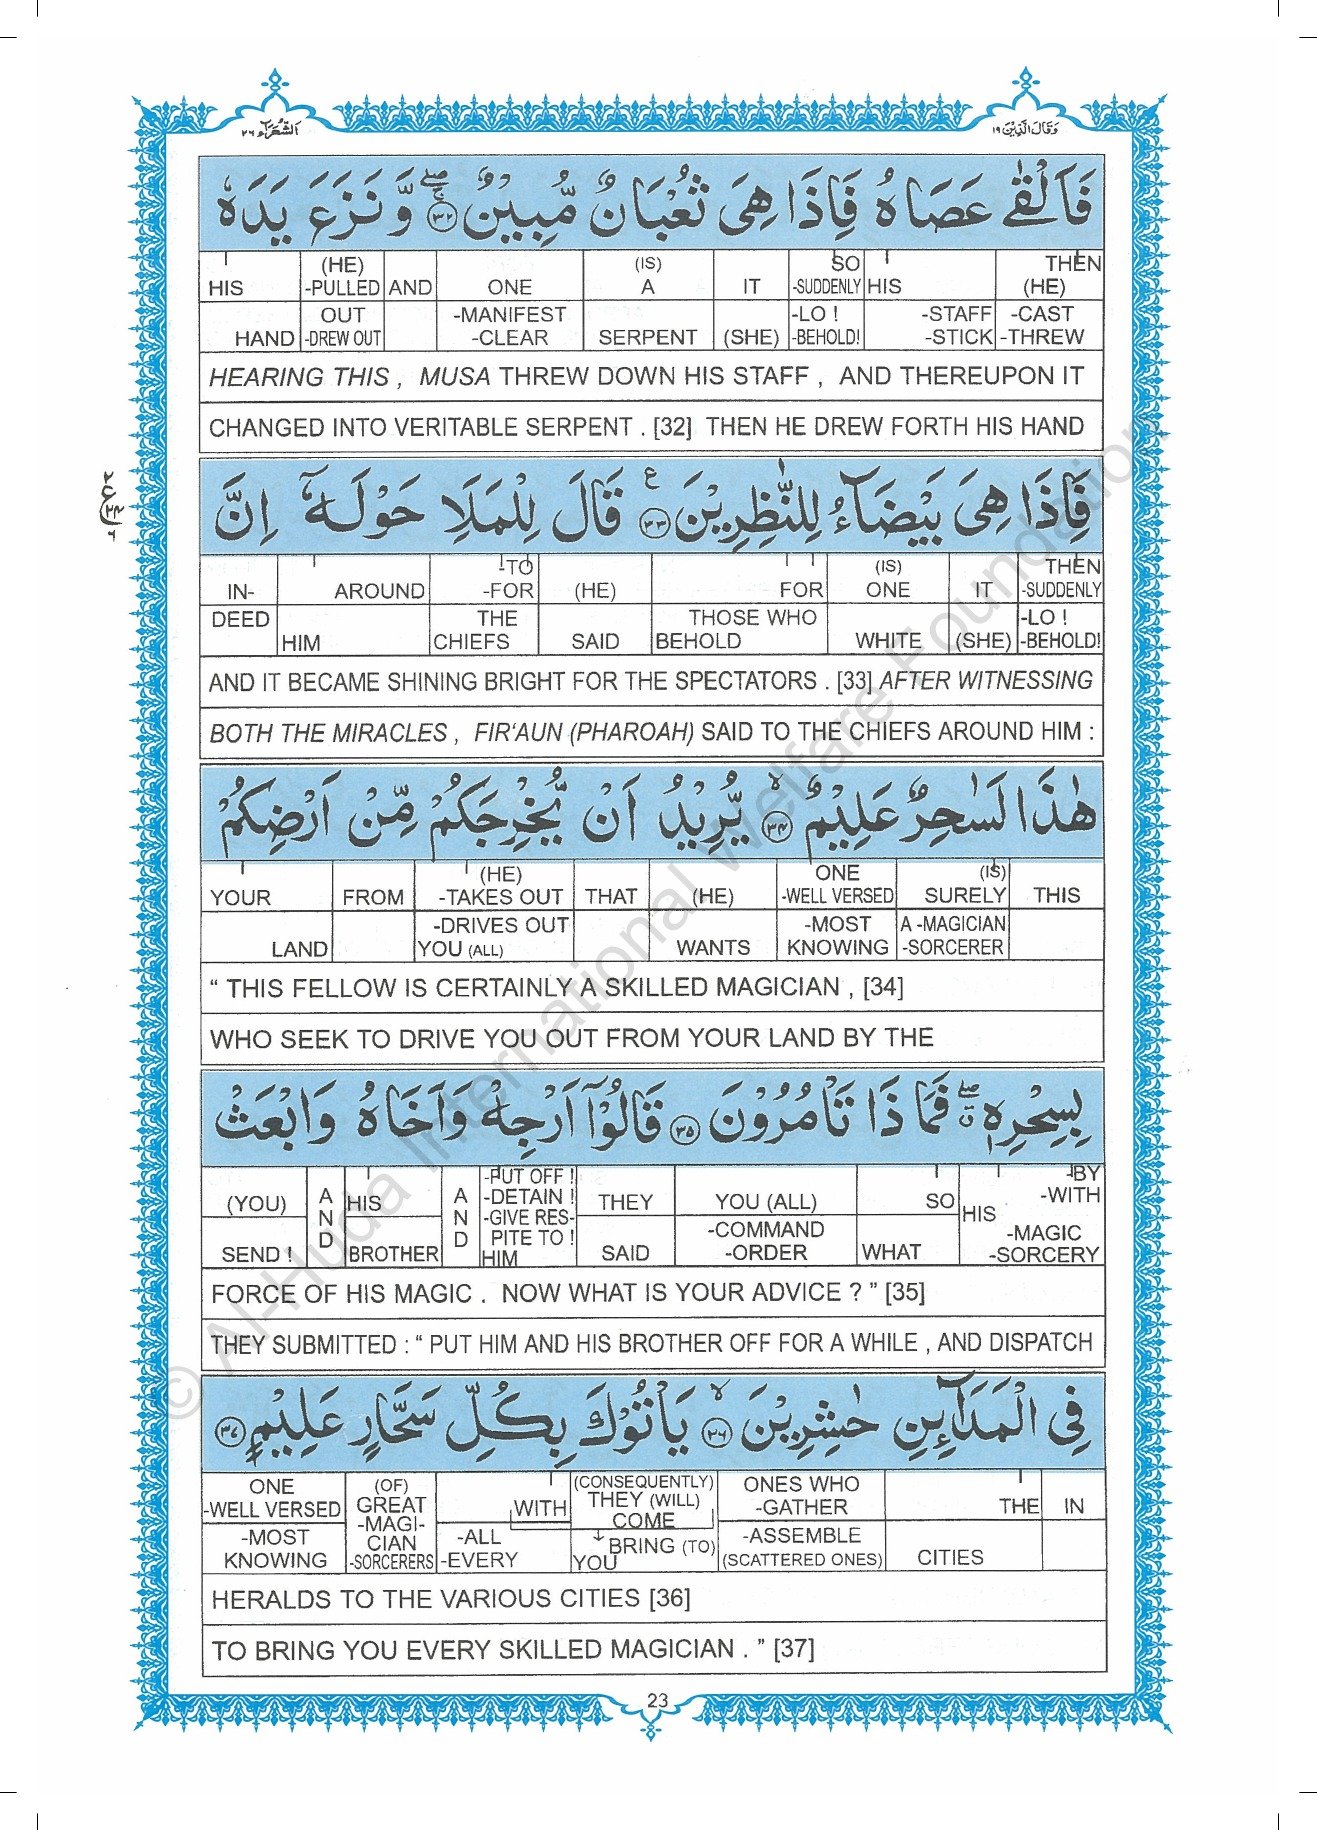 وَقَالَ الَّذِيْنَ ١٩
اَلشُّعَرَآء ٢٦
فَاَلْقٰى عَصَاهُ فَاِذَا هِىَ ثُعْبَانٌ مُّبِيْنٌ ۚۖ ٣٢ وَّنَزَعَ يَدَهٗ
HIS (HE) -PULLED AND ONE (IS) A IT SO -SUDDENLY HIS THEN (HE)
HAND OUT -DREW OUT -MANIFEST -CLEAR SERPENT (SHE) -LO ! -BEHOLD! -STAFF -STICK -CAST -THREW
HEARING THIS , MUSA THREW DOWN HIS STAFF , AND THEREUPON IT
CHANGED INTO VERITABLE SERPENT . [32] THEN HE DREW FORTH HIS HAND
فَاِذَا هِىَ بَيْضَآءُ لِلنّٰظِرِيْنَ ع ٣٣ قَالَ لِلْمَلَاِ حَوْلَهٗۤ اِنَّ
IN- AROUND -TO -FOR (HE) FOR (IS) ONE IT THEN -SUDDENLY
DEED HIM THE CHIEFS SAID THOSE WHO BEHOLD WHITE (SHE) -LO ! -BEHOLD!
AND IT BECAME SHINING BRIGHT FOR THE SPECTATORS . [33] AFTER WITNESSING
BOTH THE MIRACLES , FIR‘AUN (PHAROAH) SAID TO THE CHIEFS AROUND HIM :
هٰذَا لَسٰحِرٌ عَلِيْمٌ ۙ ٣٤ يُّرِيْدُ اَنْ يُّخْرِجَكُمْ مِّنْ اَرْضِكُمْ
YOUR FROM (HE) -TAKES OUT THAT (HE) ONE -WELL VERSED (IS) SURELY THIS
LAND -DRIVES OUT YOU (ALL) WANTS -MOST KNOWING A -MAGICIAN -SORCERER
“ THIS FELLOW IS CERTAINLY A SKILLED MAGICIAN , [34]
WHO SEEK TO DRIVE YOU OUT FROM YOUR LAND BY THE
بِسِحْرِهٖ ۖق فَمَا ذَا تَاْمُرُوْنَ ٣٥ قَالُوْۤا اَرْجِهْ وَاَخَاهُ وَابْعَثْ
(YOU) AND HIS AND -PUT OFF ! -DETAIN ! -GIVE RES- PITE TO ! HIM THEY YOU (ALL) SO HIS -BY -WITH
SEND ! BROTHER SAID -COMMAND -ORDER WHAT -MAGIC -SORCERY
FORCE OF HIS MAGIC . NOW WHAT IS YOUR ADVICE ? ” [35]
THEY SUBMITTED : “ PUT HIM AND HIS BROTHER OFF FOR A WHILE , AND DISPATCH
فِى الْمَدَآئِنِ حٰشِرِيْنَ ۙ ٣٦ يَاْتُوْكَ بِكُلِّ سَحَّارٍ عَلِيْمٍ ٣٧
ONE -WELL VERSED (OF) GREAT -MAGI- CIAN -SORCERERS WITH (CONSEQUENTLY) THEY (WILL) COME ONES WHO -GATHER THE IN
-MOST KNOWING -ALL -EVERY BRING (TO) YOU -ASSEMBLE (SCATTERED ONES) CITIES
HERALDS TO THE VARIOUS CITIES [36]
TO BRING YOU EVERY SKILLED MAGICIAN . ” [37]
23
© Al-Huda International Welfare Foundation